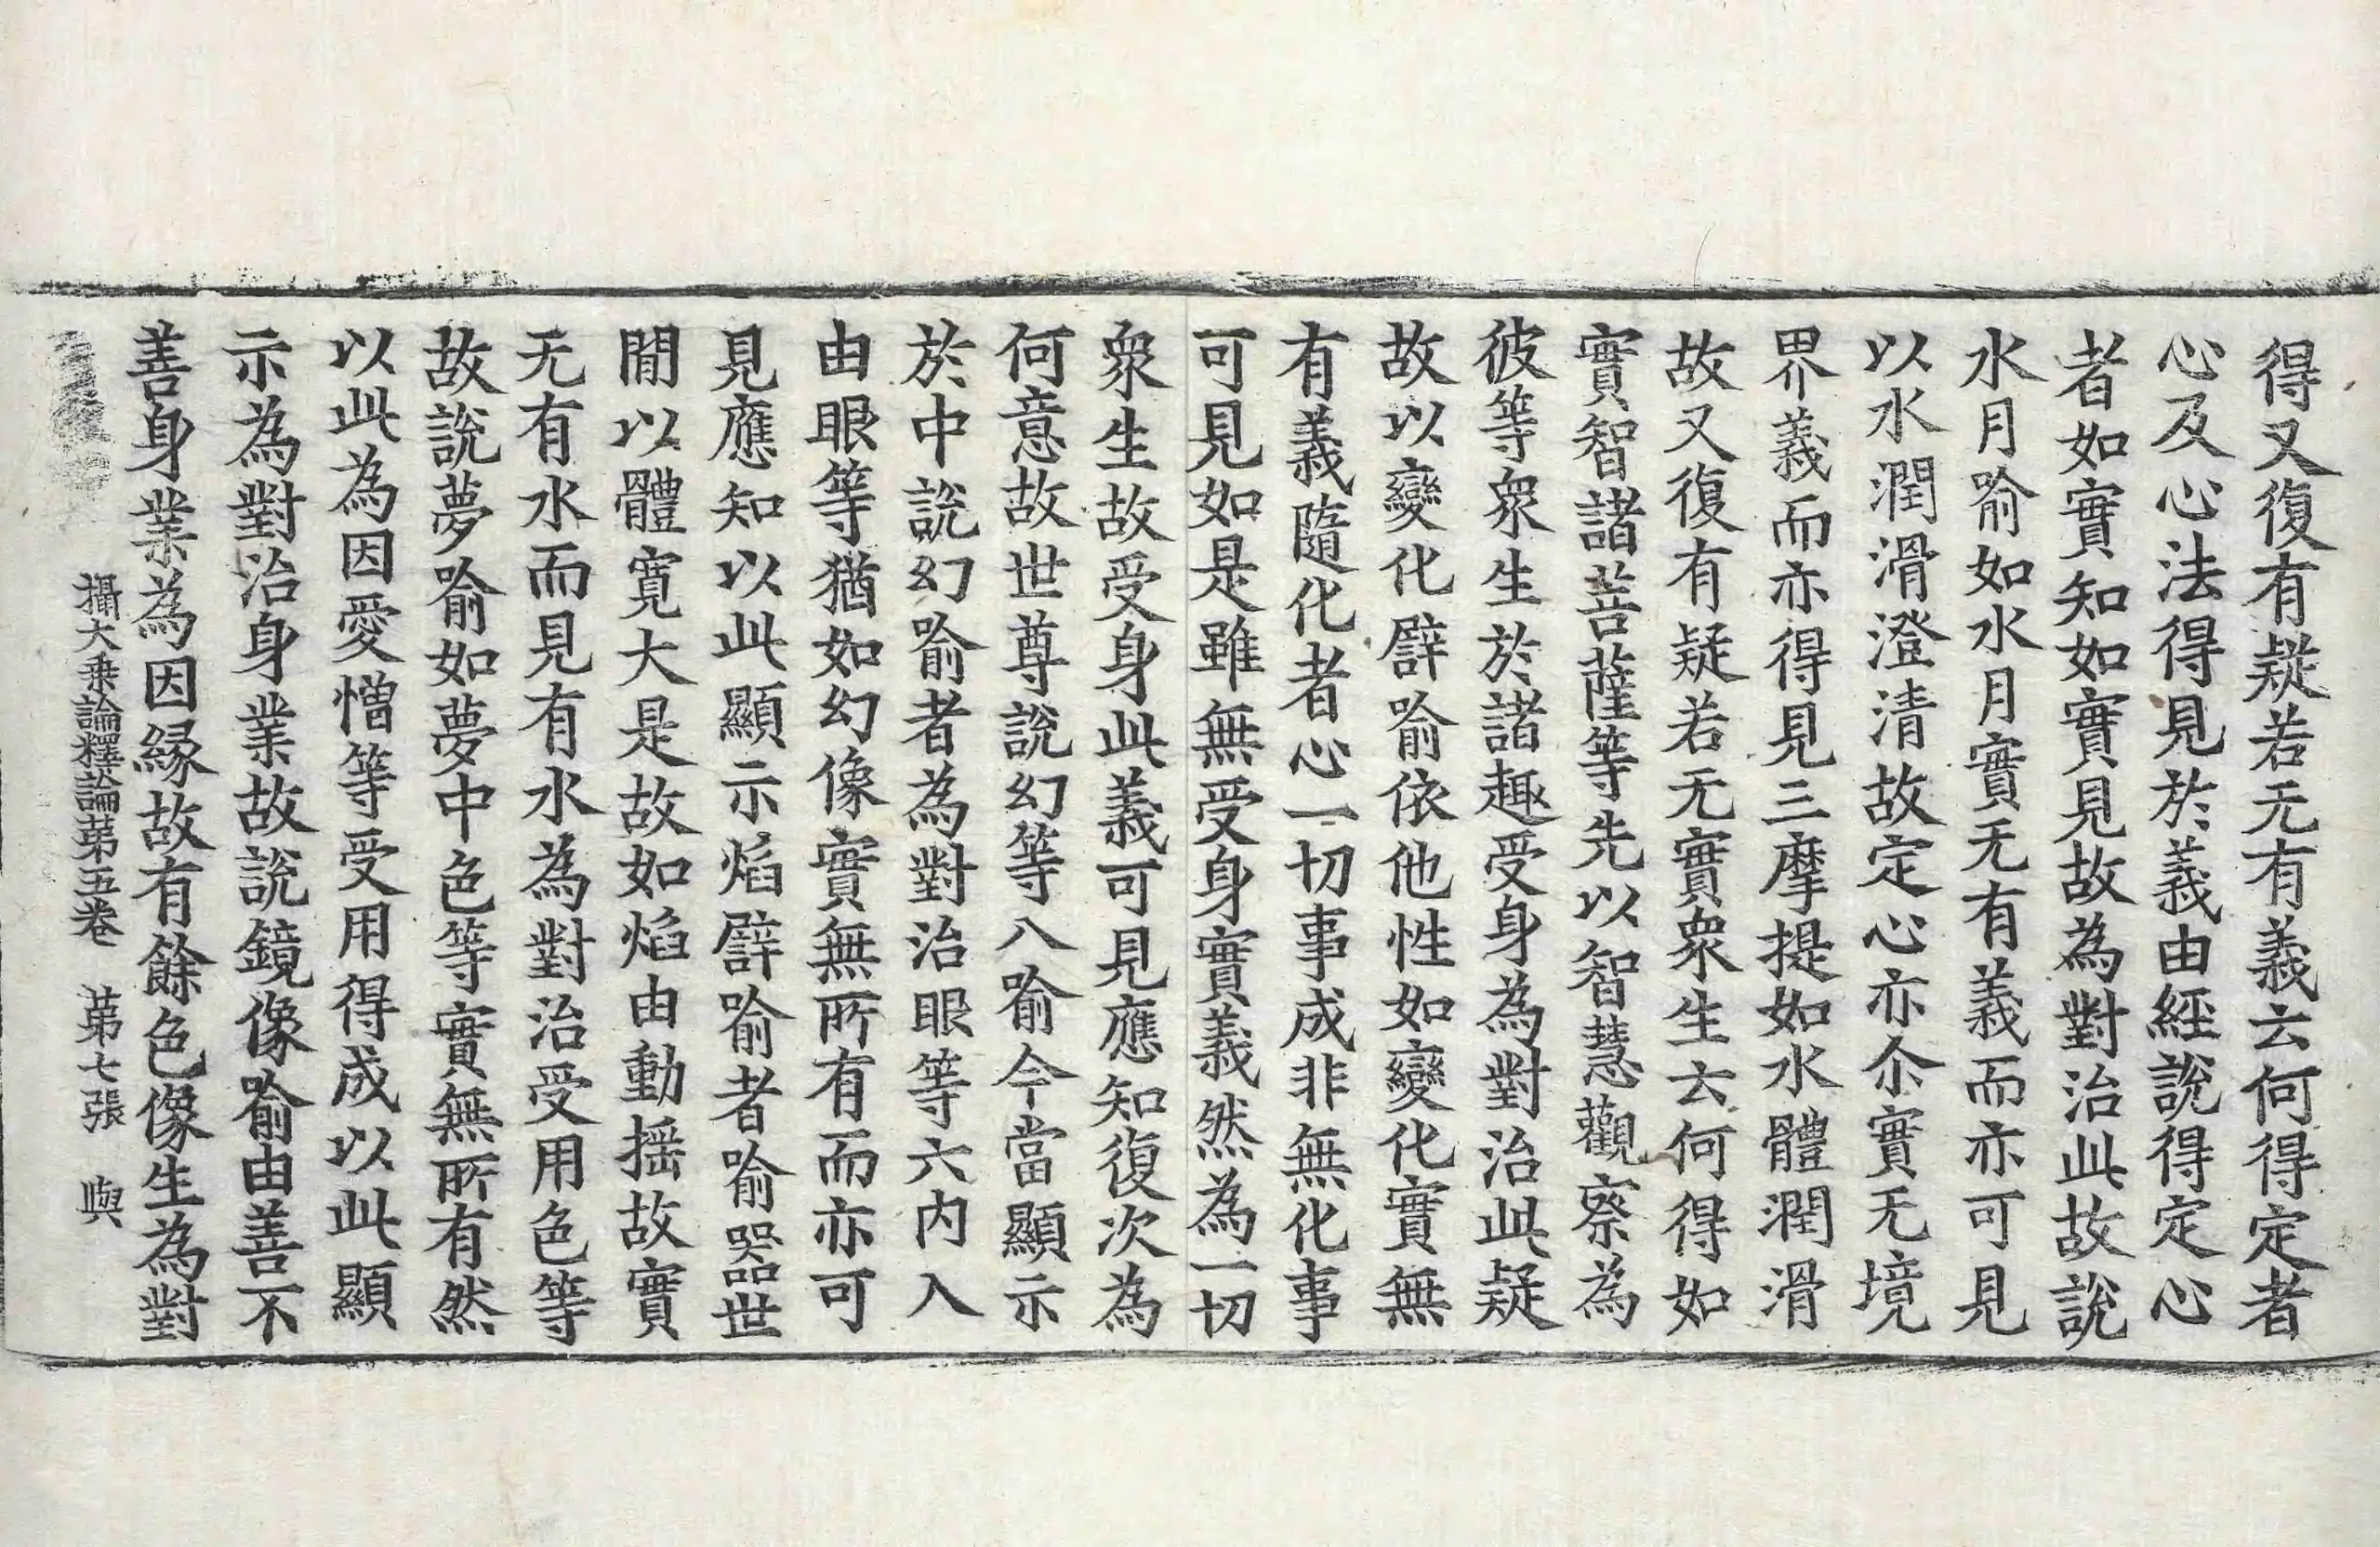 得又復有疑若无有義云何得定者
心及心法得見於義由經說得定心
者如實知如實見故為對治此故說
水月喻如水月實无有義而亦可見
以水潤滑澄清故定心亦尒實无境
界義而亦得見三摩提如水體潤滑
故又復有疑若无實衆生云何得如
實智諸菩薩等先以智慧觀察為
彼等衆生於諸趣受身為對治此疑
故以變化譬喻依他性如變化實無
有義隨化者心一切事成非無化事
可見如是雖無受身實義然為一切
衆生故受身此義可見應知復次為
何意故世尊說幻等八喻今當顯示
於中說幻喻者為對治眼等六內入
由眼等猶如幻像實無所有而亦可
見應知以此顯示焰譬喻者喻器世
間以體寬大是故如焰由動搖故實
无有水而見有水為對治受用色等
故說夢喻如夢中色等實無所有然
以此為因愛憎等受用得成以此顯
示為對治身業故說鏡像喻由善不
善身業為因緣故有餘色像生為對
攝大乗論釋論苐五卷　苐七張　與